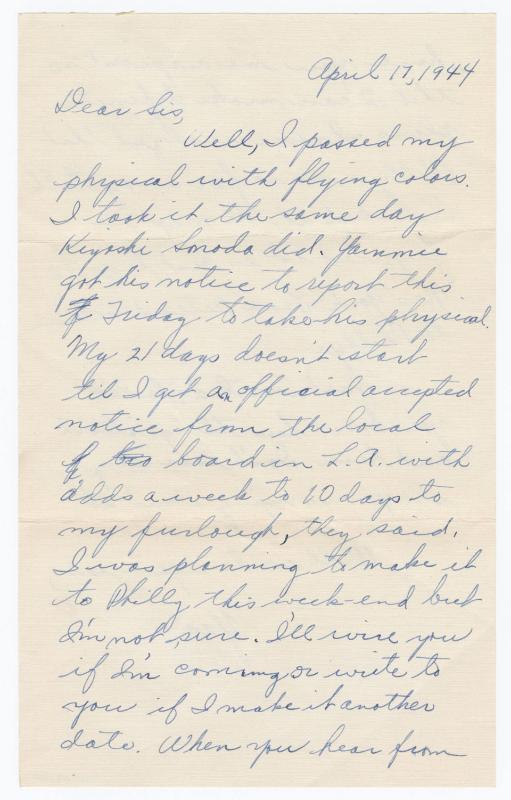 April 17, 1944
Dear Sis,
Well, I passed my
physical with flying colors.
I took it the same day
Kiyoshi Imoda did. Yammie
got his notice to report this
Friday to take his physical.
My 21 days doesn't start
til I get an official accepted
notice from the local
board in L.A. with
adds a week to 10 days to
my furlough, they said.
I was planning to make it
to Philly this week-end but
I'm not sure. I'll wire you
if I'm coming or write to
you if I make it another
date. When you hear from